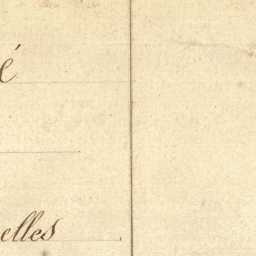 é
elles